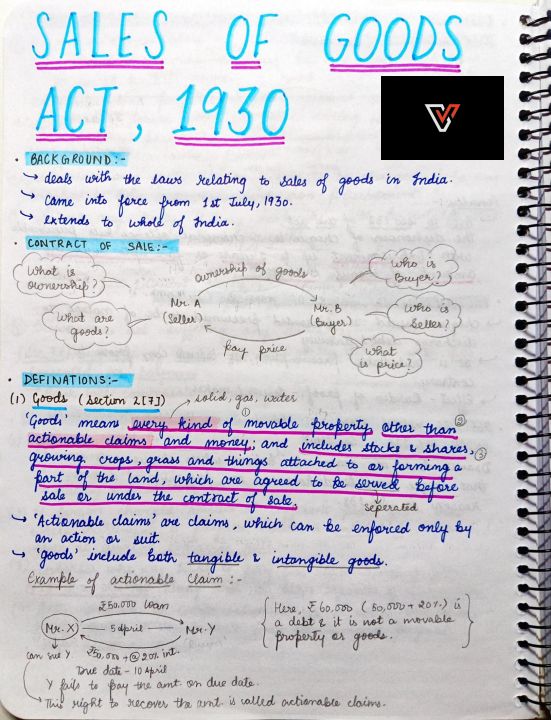 SALES OF GOODS
ACT, 1930
• BACKGROUND:-
↳ deals with the laws relating to sales of goods in India.
↳ came into force from 1st July, 1930.
↳ extends to whole of India.
• CONTRACT OF SALE:-
What is ownership?
What are goods?
ownership of goods
Mr. A (Seller)
Mr. B (Buyer)
pay price
Who is Buyer?
Who is Seller?
What is price?
• DEFINATIONS:-
(1) Goods (Section 2[7]) → solid, gas, water
'Goods' means every kind of ① movable property other than ②
actionable claims and money; and includes stocks & shares, ③
growing crops, grass and things attached to or forming a
part of the land, which are agreed to be served before
sale or under the contract of sale.
seperated
↳ 'Actionable claims' are claims, which can be enforced only by
an action or suit.
↳ 'goods' include both tangible & intangible goods.
Example of actionable Claim :-
₹50,000 loan
Mr. X
5 April
Mr. Y
can sue Y
₹50,000 + @ 20% int.
Due date - 10 April
{ Here, ₹60,000 (50,000 + 20%) is
a debt & it is not a movable
property or goods. }
Y fails to pay the amt. on due date.
↳ This right to recover the amt. is called actionable claims.